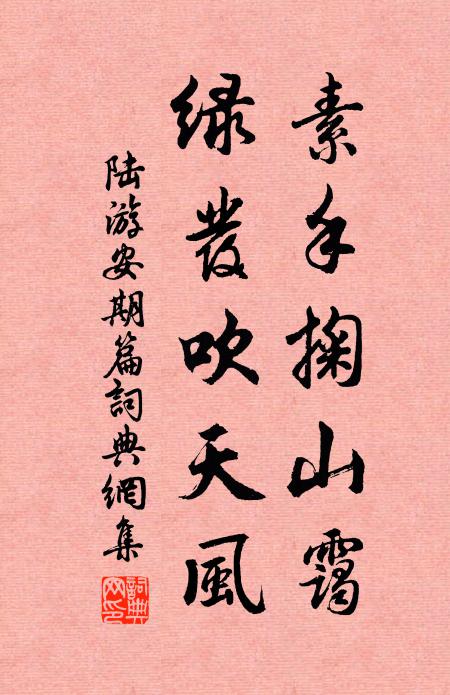 素手掬山靄
绿發吹天風
陆游安期篇詞典網集
詞典網印